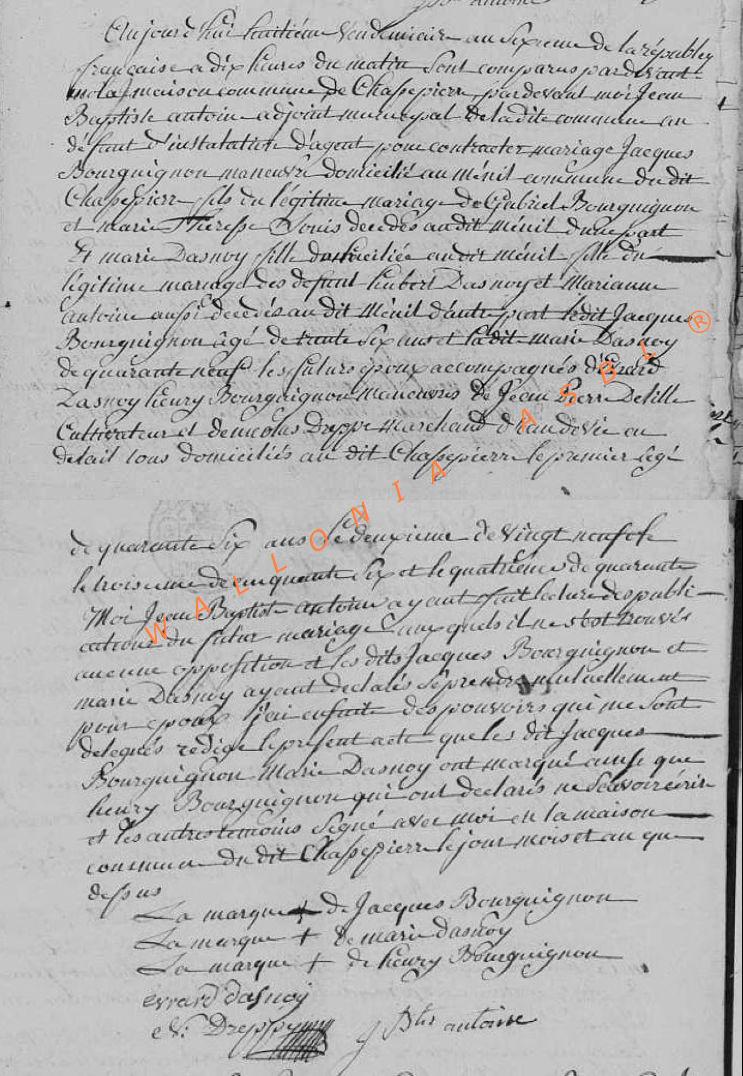 Aujourd'hui huitieme Vendemiaire an Sixieme de la republq
française a dix heures du matin Sont comparus par devant
en la maison commune de Chassepierre pardevant moi Jean
Baptiste antoine adjoint municipal de ladite commune au
défaut d'instalation d'agent pour contracter mariage Jacques
Bourguignon maneuvre domicilié au ménil commune du dit
Chassepierre fils du légitime mariage de Gabriel Bourguignon
et marie Therese Louis decedés audit ménil d'une part
Et marie Dasnoy fille domiciliée audit ménil fille du
légitime mariage des defunt hubert Dasnoy et Marianne
antoine aussi decedés au dit Ménil d'autre part ledit Jacques
Bourguignon âgé de trente Six ans et ladit marie Dasnoy
de quarante neuf les futurs epoux accompagnés d'Evrard
Dasnoy henry Bourguignon Maneuvres de Jean Pierre Delille
Cultivateur et de nicolas Dreppe Marchand d'eau de vie en
detail tous domiciliés au dit Chassepierre le premier agé
de quarante Six ans le deuxieme de vingt neuf
le troisieme de cinquante Six et le quatriemes de quarante
Moi Jean Baptiste antoine ayant fait lecture des publi-
cations du futur mariage auxquels il ne s'est trouvés
aucune opposition et les dits Jacques Bourguignon et
marie Dasnoy ayant declarés Se prendre mutuellement
pour epoux j'ai ensuite des pouvoirs qui me Sont
delegués redigé le present acte que les dit Jacques
Bourguignon Marie Dasnoy ont marqué ainsi que
henry Bourguignon qui ont declarés ne Scavoir écrire
et les autres temoins Signé avec moi en la maison
commune du dit Chassepierre le jour mois et an que
dessus
La marque + de Jacques Bourguignon
La marque + de marie dasnoy
La marque + de henry Bourguignon
evrard dasnoy
N: Dreppe
J Bte antoine
WALLONIA ASBL ®